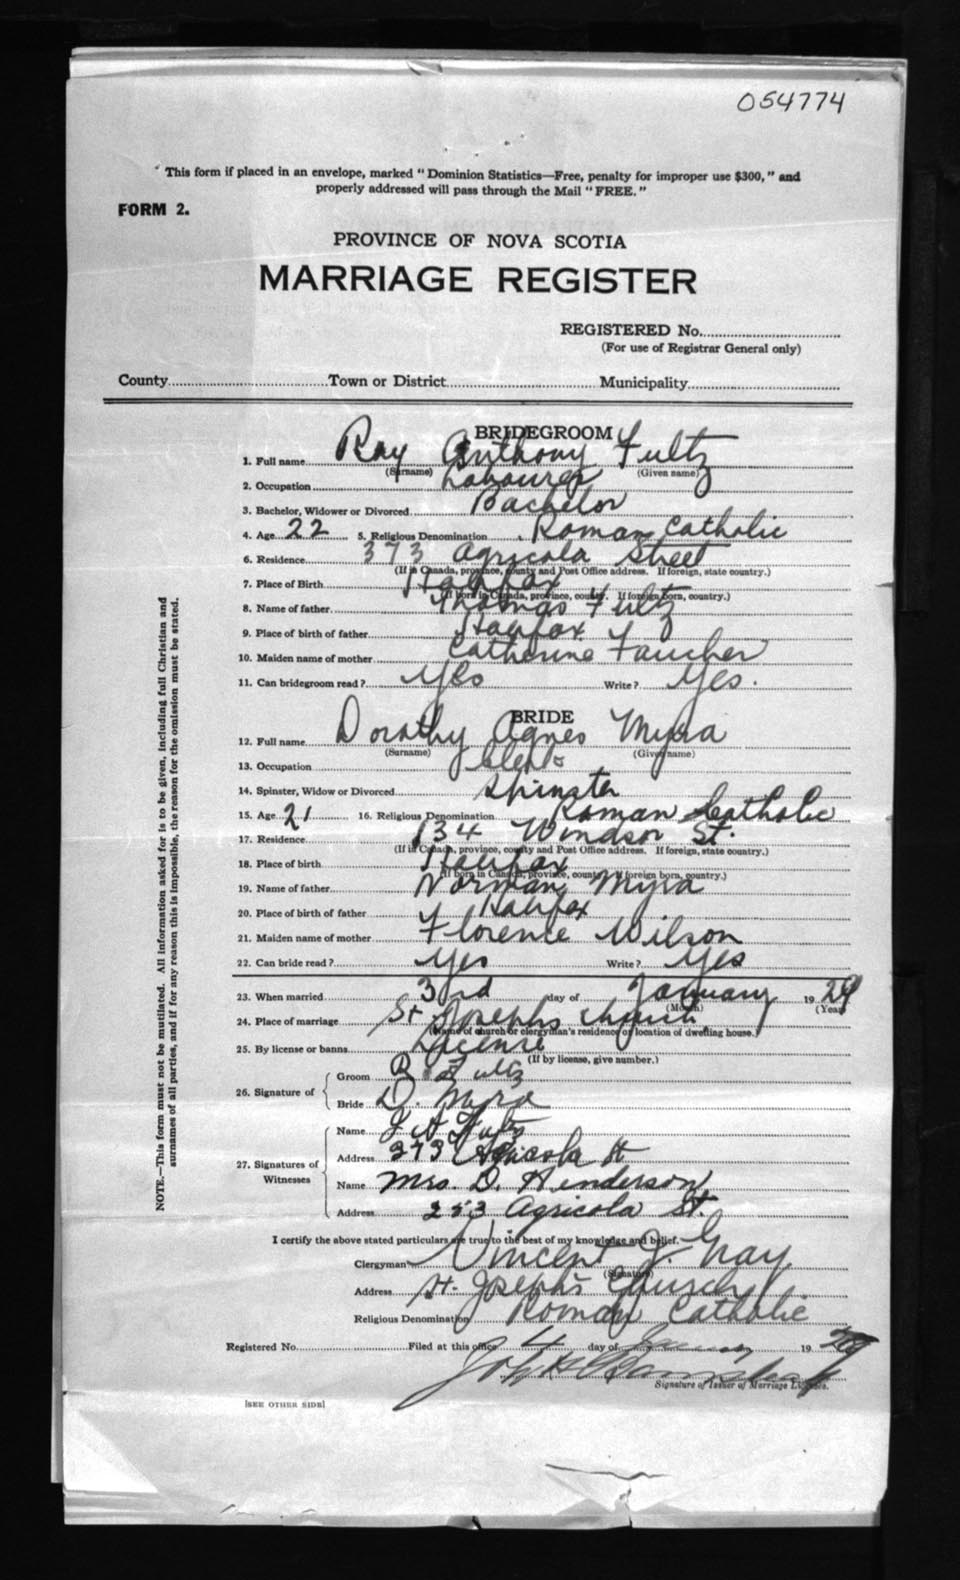 054774
This form if placed in an envelope, marked "Dominion Statistics—Free, penalty for improper use $300," and
properly addressed will pass through the Mail "FREE."
FORM 2.
PROVINCE OF NOVA SCOTIA
MARRIAGE REGISTER
REGISTERED No.
(For use of Registrar General only)
County Town or District Municipality
BRIDEGROOM
1. Full name Ray Anthony Fultz
(Surname) (Given name)
2. Occupation Labourer
3. Bachelor, Widower or Divorced Bachelor
4. Age 22 5. Religious Denomination Roman Catholic
6. Residence 373 Agricola Street
(If in Canada, province, county and Post Office address. If foreign, state country.)
7. Place of Birth Halifax
(If born in Canada, province, county. If foreign born, country.)
8. Name of father Thomas Fultz
9. Place of birth of father Halifax
10. Maiden name of mother Catherine Faucher
11. Can bridegroom read? Yes Write? Yes.
BRIDE
12. Full name Dorathy Agnes Myra
(Surname) (Given name)
13. Occupation
14. Spinster, Widow or Divorced Spinster
15. Age 21 16. Religious Denomination Roman Catholic
17. Residence 134 Windsor St.
(If in Canada, province, county and Post Office address. If foreign, state country.)
18. Place of birth Halifax
(If born in Canada, province, county. If foreign born, country.)
19. Name of father Norman Myra
20. Place of birth of father Halifax
21. Maiden name of mother Florence Wilson
22. Can bride read? Yes Write? Yes
23. When married 3rd day of January 1929
(Month) (Year)
24. Place of marriage St Josephs Church
(Name of church or clergyman's residence or location of dwelling house.)
25. By license or banns License
(If by license, give number.)
26. Signature of
Groom R. Fultz
Bride D. Myra
27. Signatures of Witnesses
Name J A Fultz
Address 373 Agricola St
Name Mrs. D. Henderson
Address 253 Agricola St.
I certify the above stated particulars are true to the best of my knowledge and belief.
Clergyman Vincent J. Gray.
(Signature)
Address St. Joseph's Church
Religious Denomination Roman Catholic
Registered No. Filed at this office 4 day of January 1929
Signature of Issuer of Marriage Licenses.
[SEE OTHER SIDE]
NOTE.—This form must not be mutilated. All information asked for is to be given, including full Christian and
surnames of all parties, and if for any reason this is impossible, the reason for the omission must be stated.